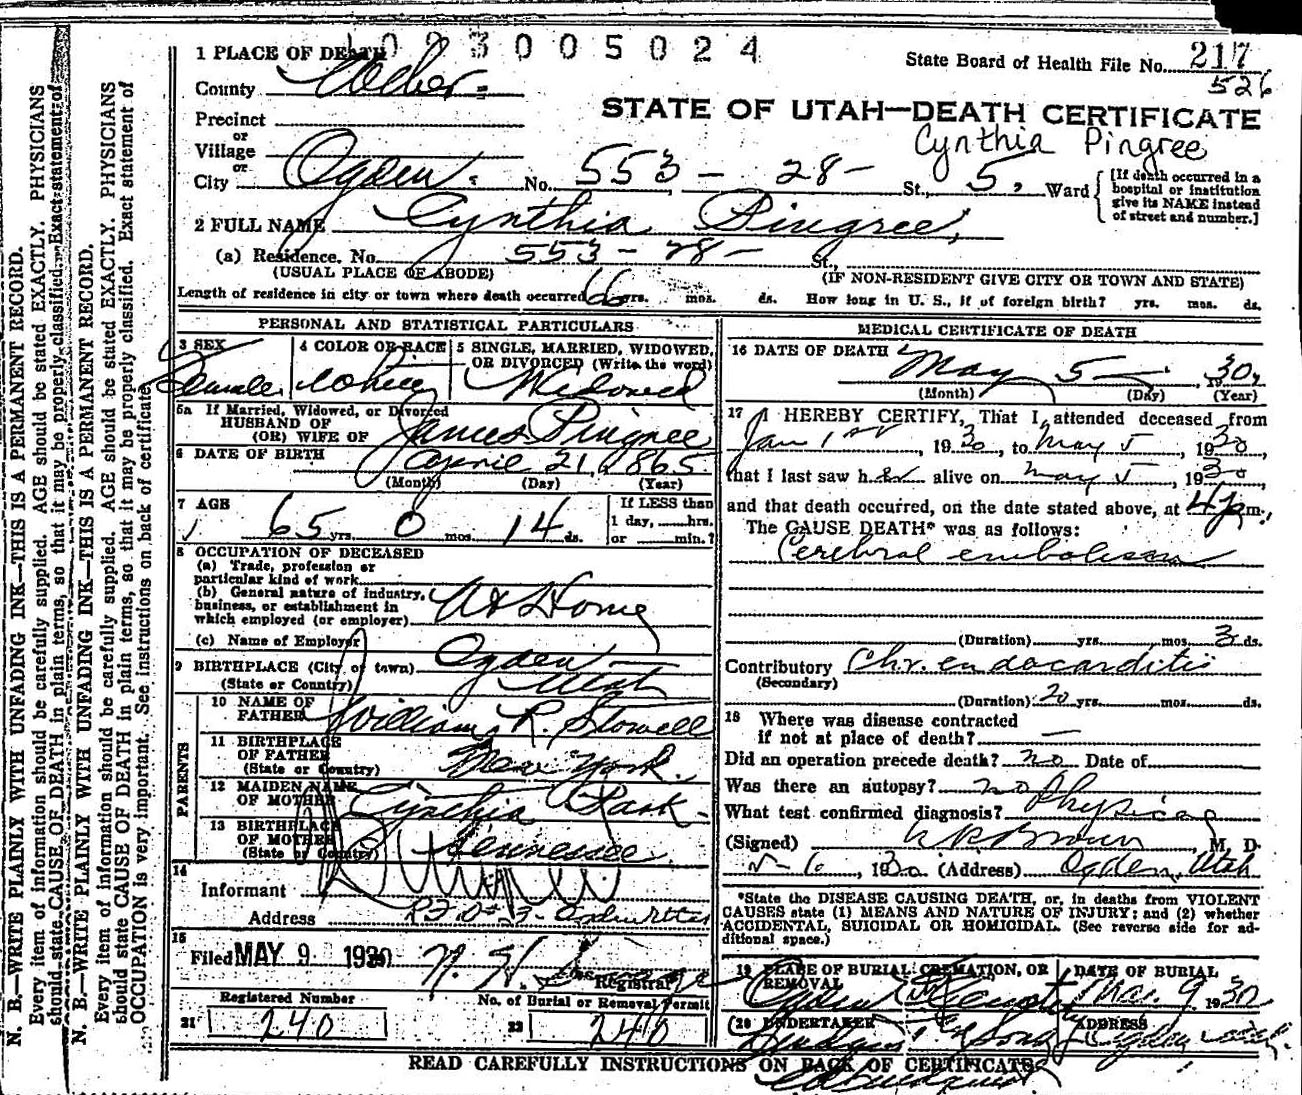 3005024
1 PLACE OF DEATH
State Board of Health File No. 217
526
County Weber
STATE OF UTAH—DEATH CERTIFICATE
Precinct
or
Cynthia Pingree
Village
or
City Ogden No. 553 - 28 - St., 5, Ward
[If death occurred in a hospital or institution give its NAME instead of street and number.]
2 FULL NAME Cynthia Pingree,
(a) Residence. No. 553 - 28 - St.,
(USUAL PLACE OF ABODE) (IF NON-RESIDENT GIVE CITY OR TOWN AND STATE)
Length of residence in city or town where death occurred yrs. mos. ds. How long in U. S., if of foreign birth? yrs. mos. ds.
PERSONAL AND STATISTICAL PARTICULARS
3 SEX Female
4 COLOR OR RACE White
5 SINGLE, MARRIED, WIDOWED, OR DIVORCED (Write the word) Widowed
5a If Married, Widowed, or Divorced
HUSBAND OF
(OR) WIFE OF James Pingree
6 DATE OF BIRTH April 21, 1865
(Month) (Day) (Year)
7 AGE 65 yrs. 0 mos. 14 ds.
If LESS than
1 day, hrs.
or min.?
8 OCCUPATION OF DECEASED
(a) Trade, profession or
particular kind of work
(b) General nature of industry,
business, or establishment in
which employed (or employer) At Home
(c) Name of Employer
9 BIRTHPLACE (City or town) Ogden
(State or Country) Utah
PARENTS
10 NAME OF FATHER William R. Stowell
11 BIRTHPLACE OF FATHER (State or Country) New York.
12 MAIDEN NAME OF MOTHER Cynthia Park
13 BIRTHPLACE OF MOTHER (State or Country) Tennessee
14
Informant
Address R.F.D. # 3 - Ogden Utah
15
Filed MAY 9 1930
Registrar
Registered Number
21 240
No. of Burial or Removal Permit
22 240
MEDICAL CERTIFICATE OF DEATH
16 DATE OF DEATH May 5 - , 1930,
(Month) (Day) (Year)
17 I HEREBY CERTIFY, That I attended deceased from
Jan 1st, 1930, to May 5, 1930
that I last saw her alive on May 5, 1930,
and that death occurred, on the date stated above, at m.,
The CAUSE DEATH* was as follows:
Cerebral embolism
(Duration) yrs. mos. 3 ds.
Contributory Chr. endocarditis
(Secondary)
(Duration) 20 yrs. mos. ds.
18 Where was disease contracted
if not at place of death? —
Did an operation precede death? no Date of
Was there an autopsy? no
What test confirmed diagnosis? Physical
(Signed) Brown, M. D.
5-6, 1930 (Address) Ogden, Utah
*State the DISEASE CAUSING DEATH, or, in deaths from VIOLENT
CAUSES state (1) MEANS AND NATURE OF INJURY; and (2) whether
ACCIDENTAL, SUICIDAL OR HOMICIDAL. (See reverse side for ad-
ditional space.)
19 PLACE OF BURIAL, CREMATION, OR REMOVAL Ogden Cemetery
DATE OF BURIAL May 9 1930
(20 UNDERTAKER & Sons
ADDRESS Ogden Utah.
READ CAREFULLY INSTRUCTIONS ON BACK OF CERTIFICATE
N. B.—WRITE PLAINLY WITH UNFADING INK—THIS IS A PERMANENT RECORD.
Every item of information should be carefully supplied. AGE should be stated EXACTLY. PHYSICIANS
should state CAUSE OF DEATH in plain terms, so that it may be properly classified. Exact statement of
N. B.—WRITE PLAINLY WITH UNFADING INK—THIS IS A PERMANENT RECORD.
Every item of information should be carefully supplied. AGE should be stated EXACTLY. PHYSICIANS
should state CAUSE OF DEATH in plain terms, so that it may be properly classified. Exact statement of
OCCUPATION is very important. See instructions on back of certificate.